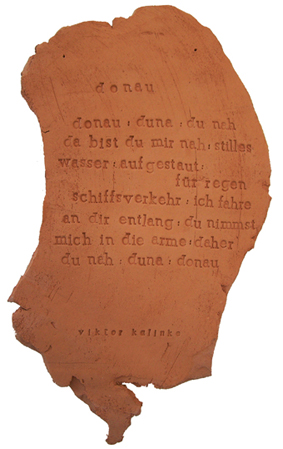 donau
donau : duna : du nah
da bist du mir nah : stilles
wasser : aufgestaut :
für regen
schiffsverkehr : ich fahre
an dir entlang : du nimmst
mich in die arme : daher
du nah : duna : donau
viktor kalinke